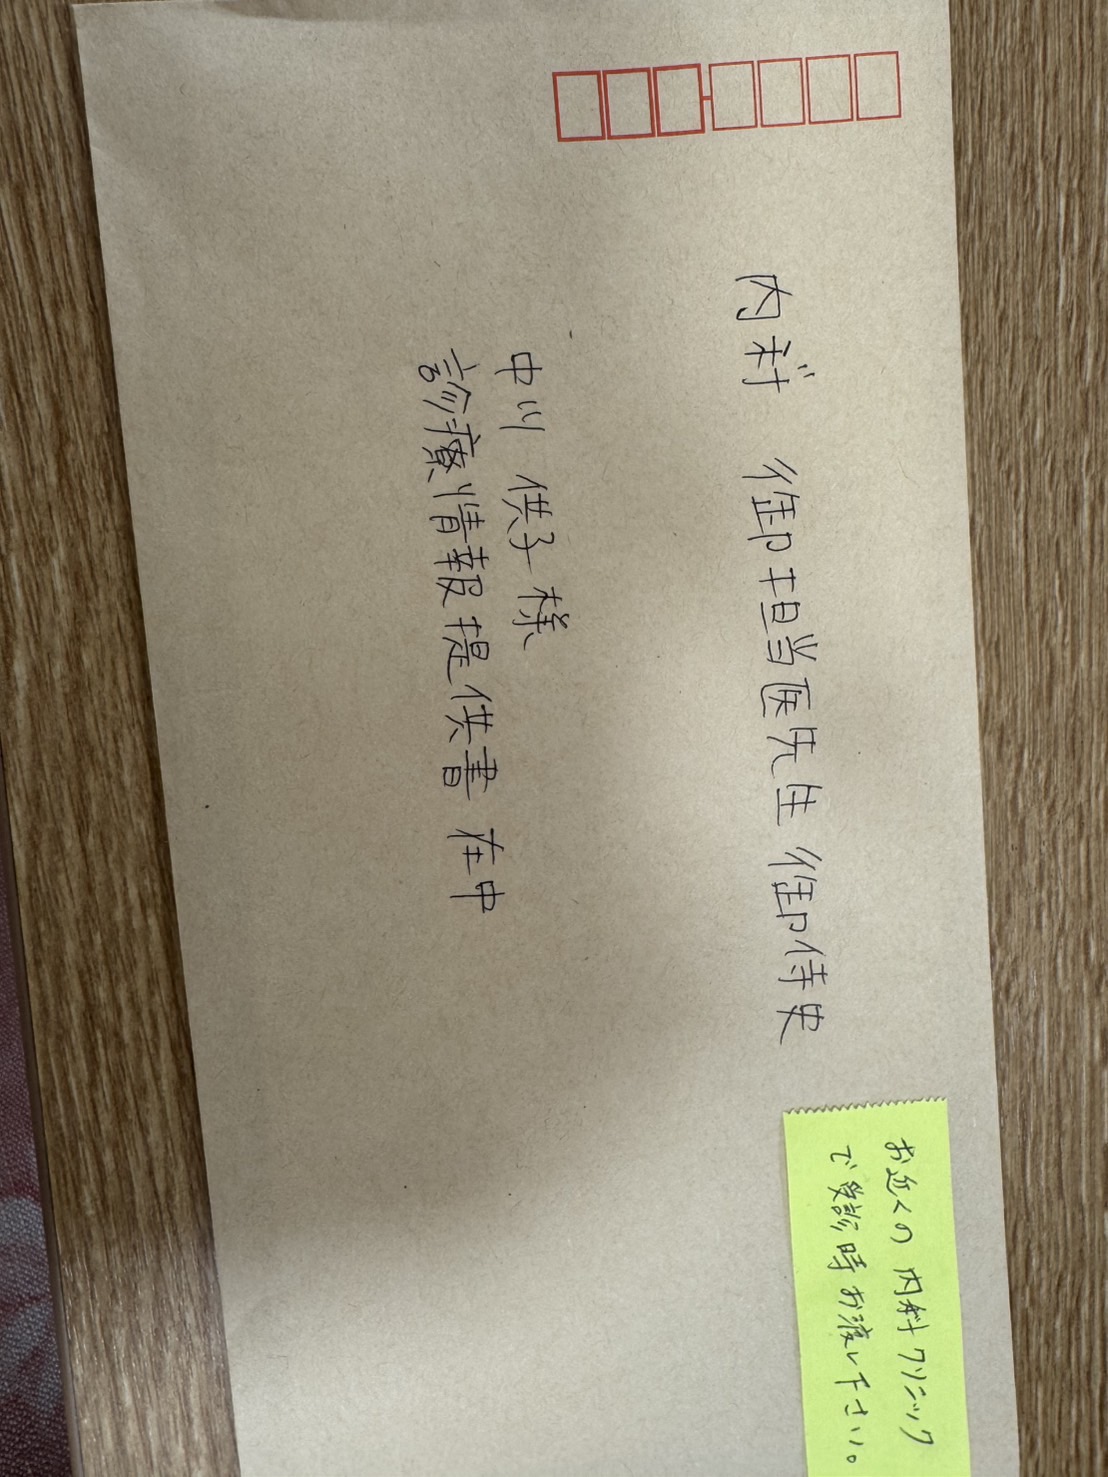 内科 御担当医先生 御侍史
中川 供子様
診療情報提供書 在中
お近くの内科クリニック
で受診時お渡し下さい。